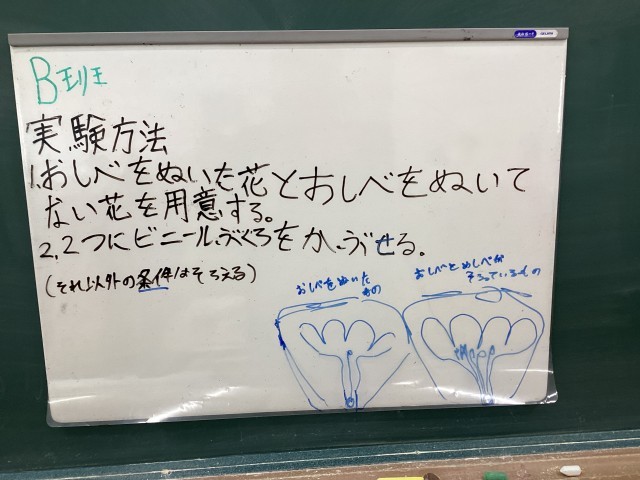 B班
実験方法
1.おしべをぬいた花とおしべをぬいて
ない花を用意する。
2.2つにビニールぶくろをかぶせる。
(それ以外の条件はそろえる)
おしべをぬいた
もの
おしべとめしべが
そろっているもの